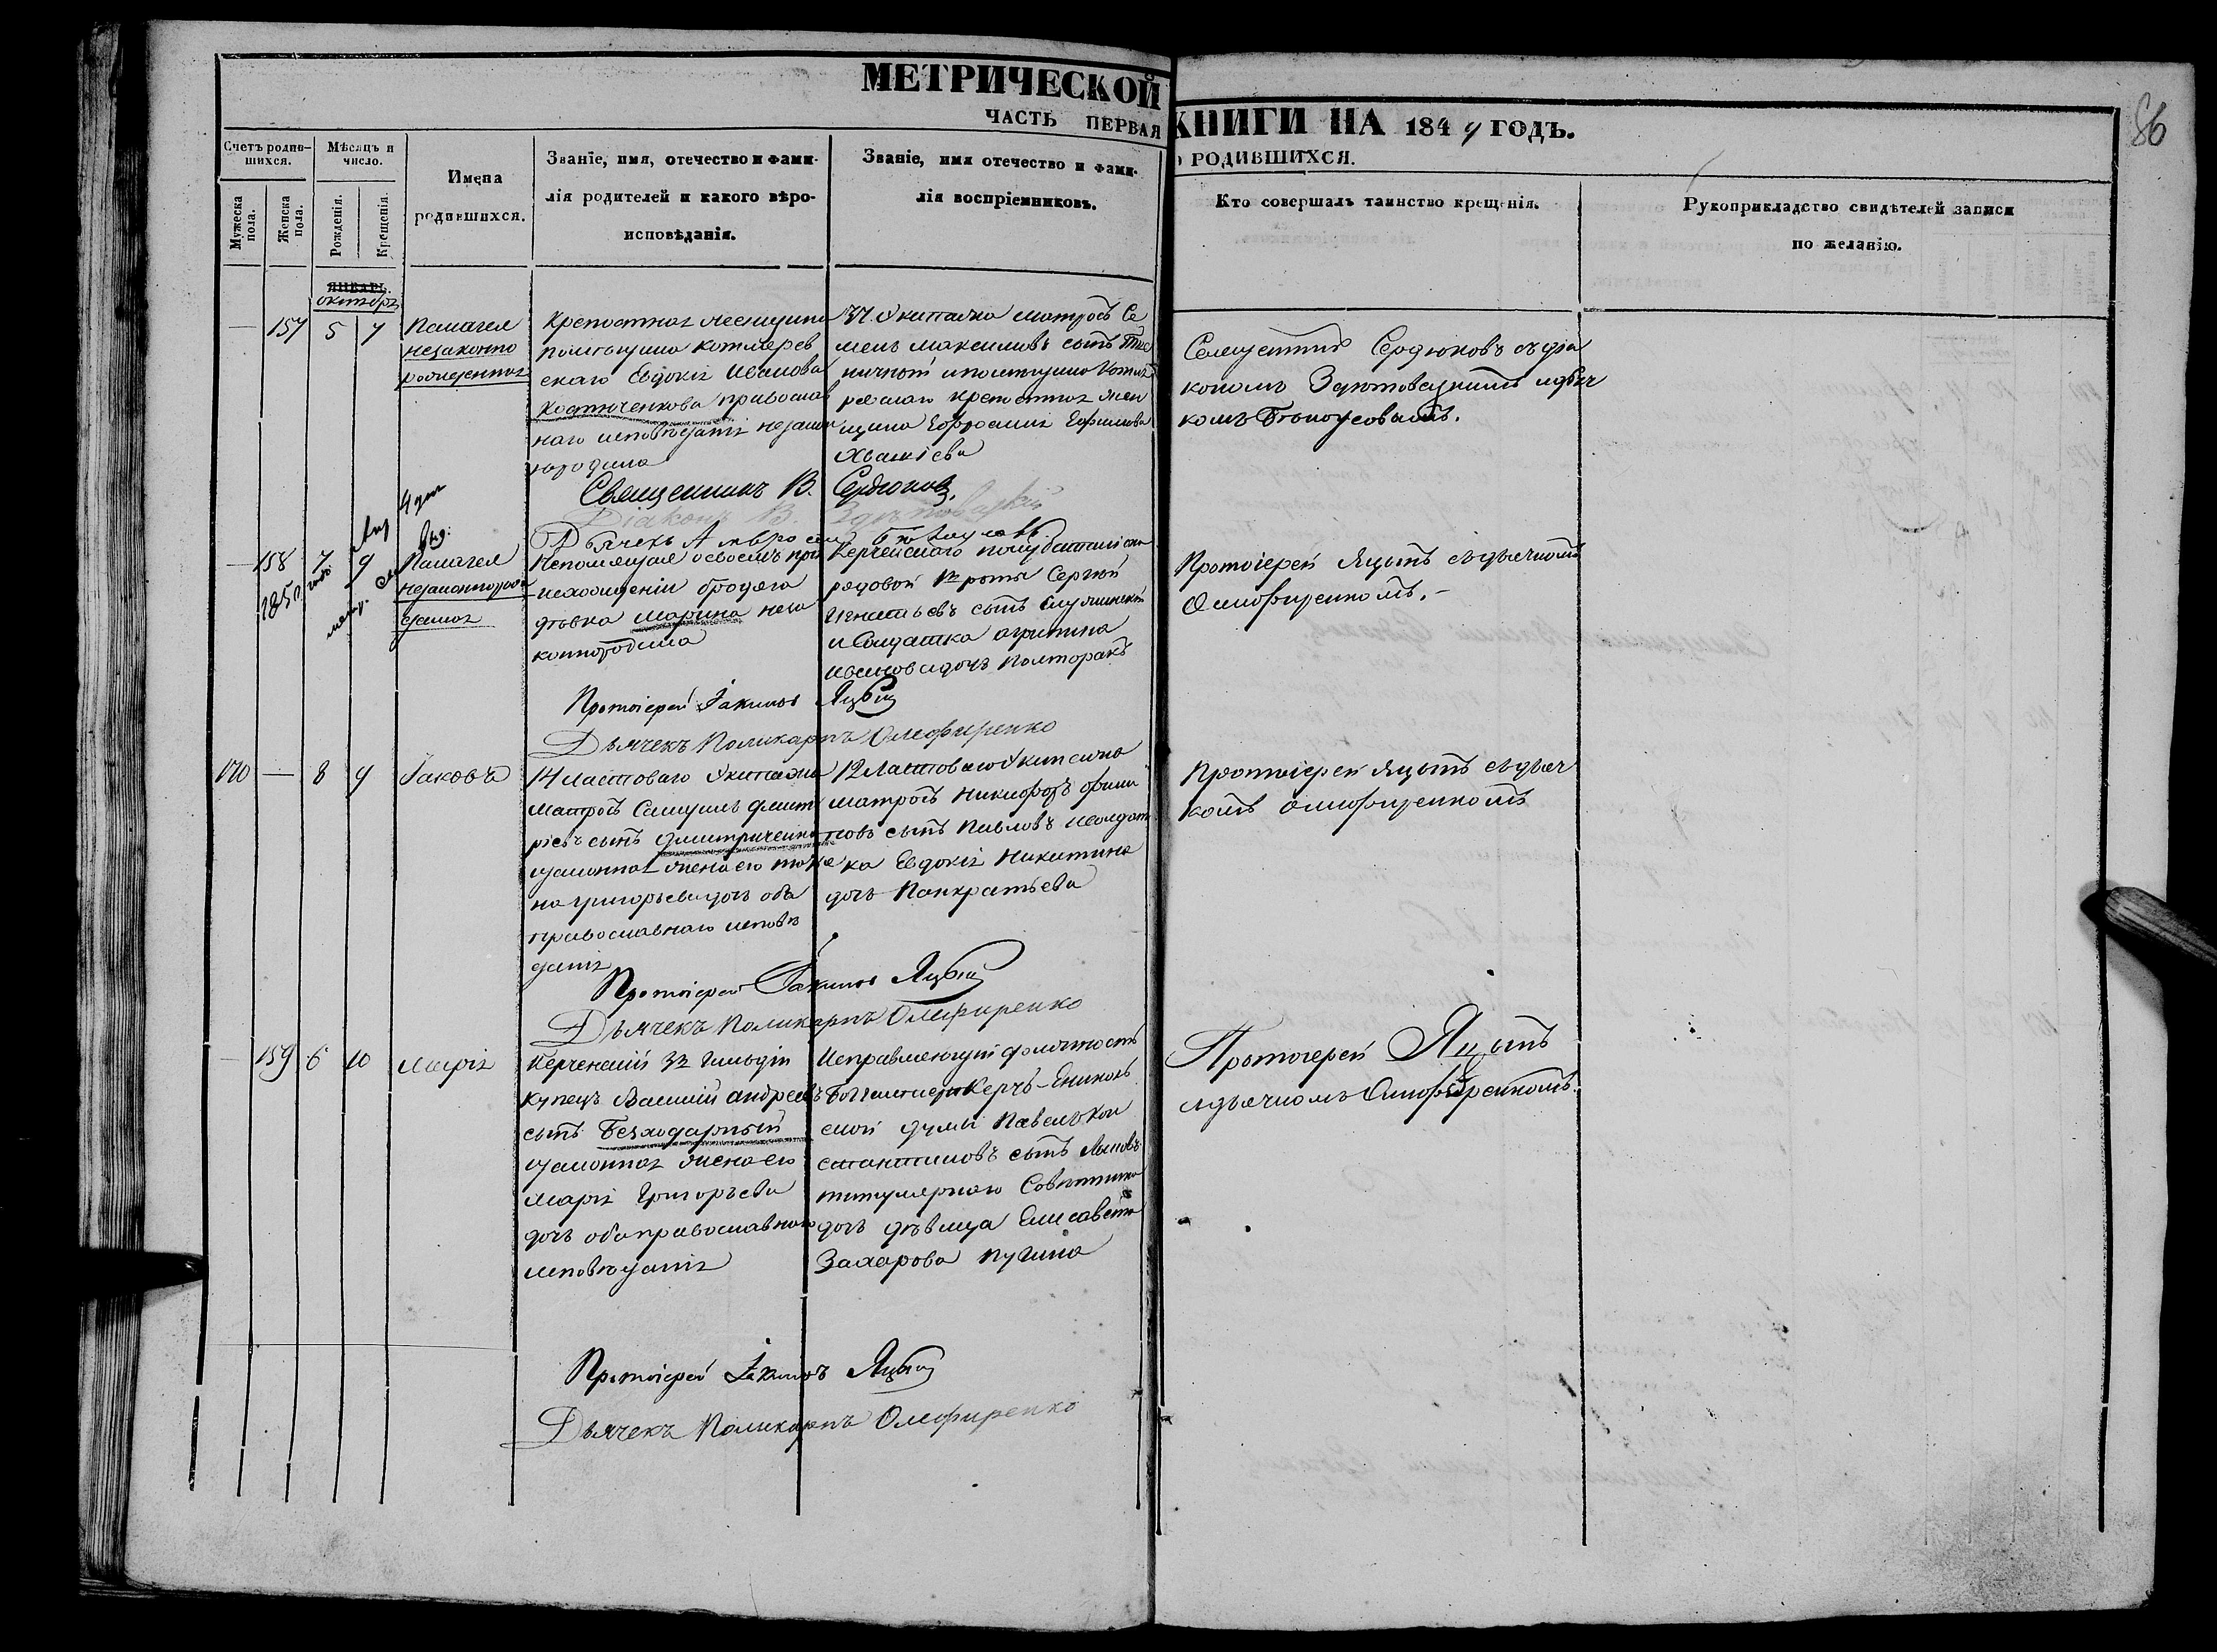 МЕТРИЧЕСКОЙ КНИГИ НА 1849 ГОДЪ.
ЧАСТЬ ПЕРВАЯ О РОДИВШИХСЯ.
86
Счетъ родив-
шихся.
Мужеска
пола.
Женска
пола.
Мѣсяцъ и
число.
Рожденія.
Крещенія.
Имена
родившихся.
Званіе, имя, отечество и фами-
лія родителей и какого вѣро-
исповѣданія.
Званіе, имя отечество и фами-
лія воспріемниковъ.
Кто совершалъ таинство крещенія.
Рукоприкладство свидѣтелей записи
по желанію.
ЯНВАРЬ.
октябрь
157 5 7
Пелагея
незаконно
рожденная
Крепостная женщина
помещика
скаго Евдокія Иванова
Костюченкова православ
наго исповѣданія незакон
нородила
Экипажа матросъ Се
менъ Максимовъ сынъ
крепостная жен
щина Ефросинія Ефимова
Сердюковъ съ діа
кономъ Здитовецкимъ и дьяч
комъ Белоусовымъ.
Священникъ В. Сердюковъ.
Діаконъ В. Здитовецкій
Дьячекъ Амвросій Белоусовъ
158 7 9
1850 года
Пелагея
незаконнорож
денная
Непомнящая о своемъ про
исхожденіи бродяга
дѣвка Марина неза
коннородила
Керченскаго полубаталіона
рядовой роты Сергей
Игнатьевъ сынъ
и Солдатка Агрипина
Иванова дочь Полторакъ
Протоіерей Яцынъ съ дьячкомъ
Олиофиренкомъ.-
Протоіерей Іакимъ Яцынъ
Дьячекъ Поликарпъ Олефиренко
170 — 8 9
Іаковъ
14 Ластоваго Экипажа
Матросъ Самуилъ Дмит
ріевъ сынъ Дмитриченко
законная жена его Татья
на Григорьева дочь оба
православнаго исповѣ
данія
12 Ластоваго Экипажа
матросъ Никифоръ Филип
повъ сынъ Павловъ и солдат
ка Евдокія Никитина
дочь Панкратьева
Протоіерей Яцынъ съ дьяч
комъ Олиофиренкомъ
Протоіерей Іакимъ Яцынъ
Дьячекъ Поликарпъ Олефиренко
159 6 10
Марія
Керченскій 3й гильдіи
купецъ Василій Андреевъ
сынъ Безходарный
законная жена его
Марія Григорьева
дочь оба православнаго
исповѣданія
Исправляющій должность
Керчь-Ениколь
ской думы Павелъ Кон
стантиновъ сынъ
титулярнаго Совѣтника
дочь дѣвица Елисавета
Захарова Пугина
Протоіерей Яцынъ
съ дьячкомъ Олиофиренкомъ.
Протоіерей Іакимъ Яцынъ
Дьячекъ Поликарпъ Олефиренко